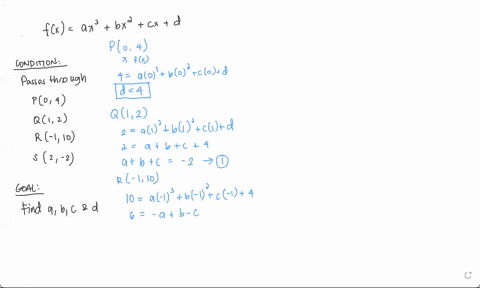 f(x) = ax³ + bx² + cx + d
CONDITION:
Passes through
P(0,4)
Q(1,2)
R(-1,10)
S(2,-2)
GOAL:
Find a, b, c & d
P(0,4)
x f(x)
4 = a(0)³ + b(0)² + c(0) + d
d = 4
Q(1,2)
2 = a(1)³ + b(1)² + c(1) + d
2 = a + b + c + 4
a + b + c = -2 → ①
R(-1,10)
10 = a(-1)³ + b(-1)² + c(-1) + 4
6 = -a + b - c